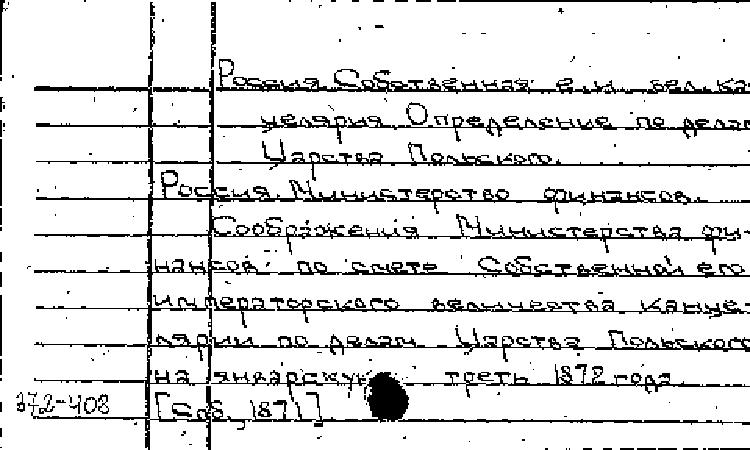 Россия. Собственная е.и. вел. кан-
целярия. Определение по делам
Царства Польского.
Россия. Министерство финансов.
Соображения Министерства фи-
нансов: по смете Собственной его
императорского величества канце-
лярии по делам Царства Польского
на январскую треть 1872 года.
372-408 [Спб., 1871]